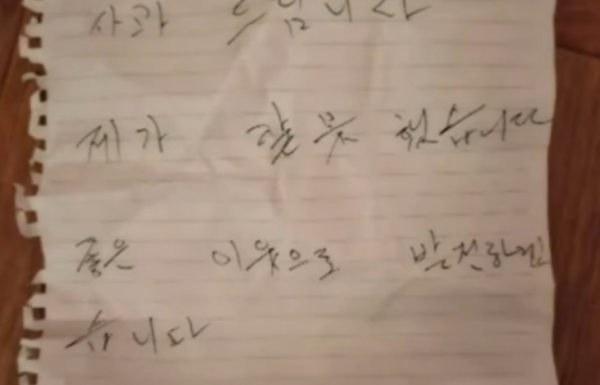 사과 드립니다
제가 잘못 했습니다
좋은 이웃으로 발전하겠
습니다